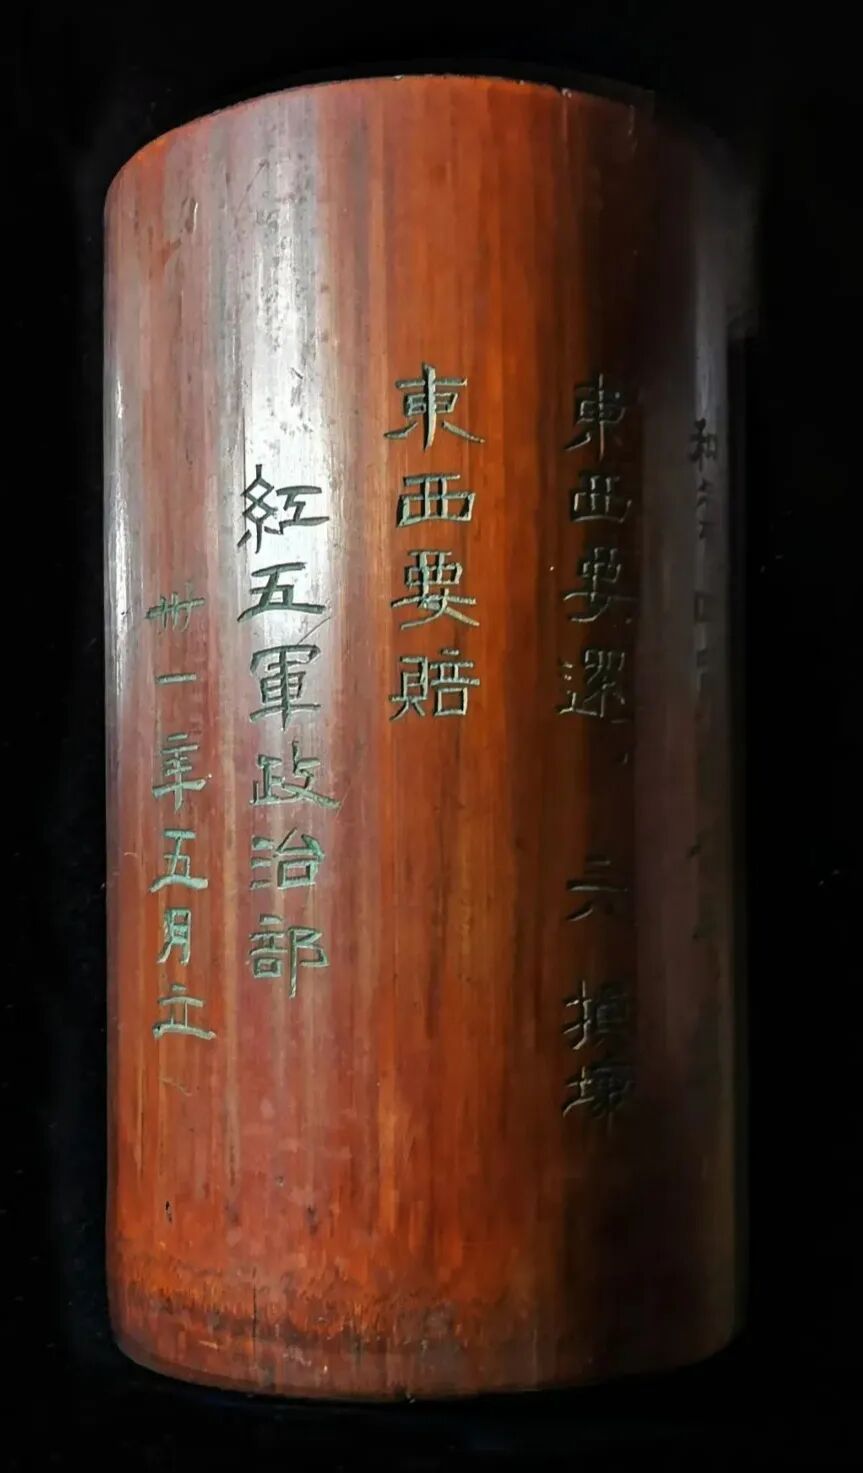 和
東西要還、六 損壞
東西要賠
紅五軍政治部
卅一年五月立